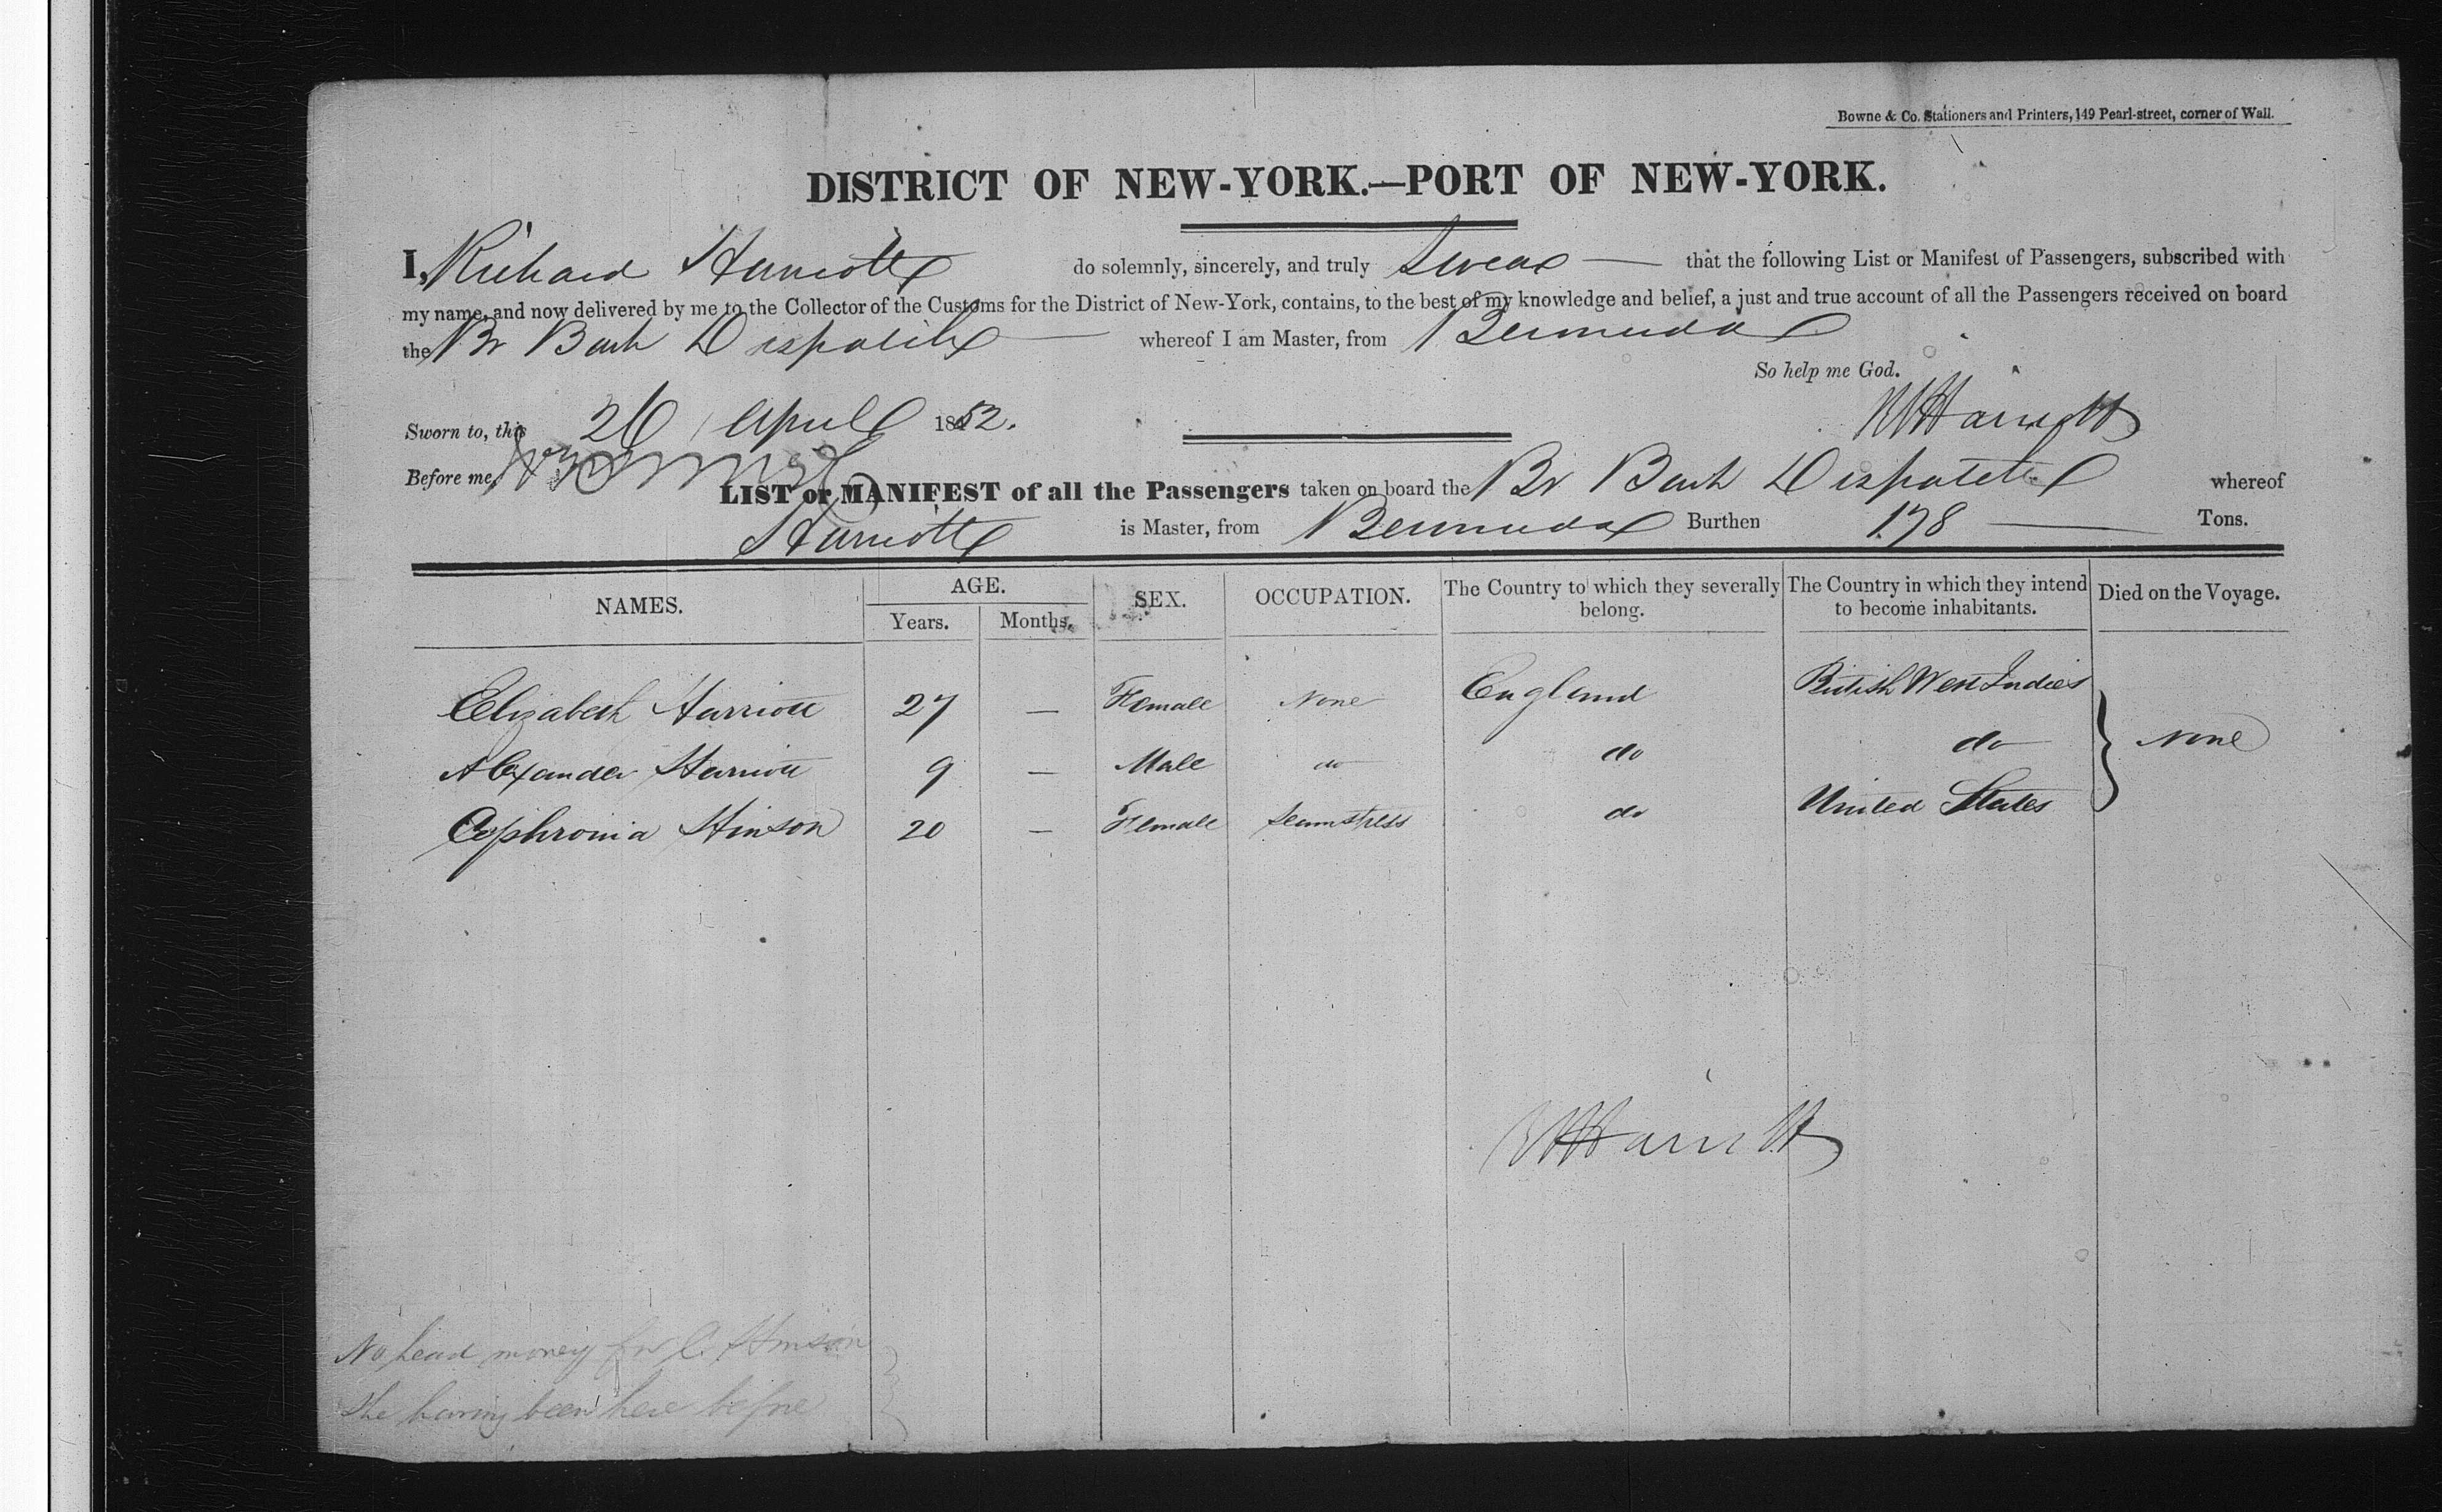 Bowne & Co. Stationers and Printers, 149 Pearl-street, corner of Wall.
DISTRICT OF NEW-YORK.—PORT OF NEW-YORK.
I, Richard Harriott do solemnly, sincerely, and truly Swear — that the following List or Manifest of Passengers, subscribed with
my name, and now delivered by me to the Collector of the Customs for the District of New-York, contains, to the best of my knowledge and belief, a just and true account of all the Passengers received on board
the Br Bark Dispatch — whereof I am Master, from Bermuda
So help me God.
Sworn to, this 26 April 1852. R Harriott
Before me,
LIST or MANIFEST of all the Passengers taken on board the Br Bark Dispatch whereof
Harriott is Master, from Bermuda Burthen 178 — Tons.
NAMES. AGE. Years. Months. SEX. OCCUPATION. The Country to which they severally belong. The Country in which they intend to become inhabitants. Died on the Voyage.
Elizabeth Harriott 27 — Female None England British West Indies
Alexander Harriott 9 — Male do do do None
Cephronia Hinson 20 — Female Seamstress do United States
R Harriott
No head money for C. Hinson
she having been here before